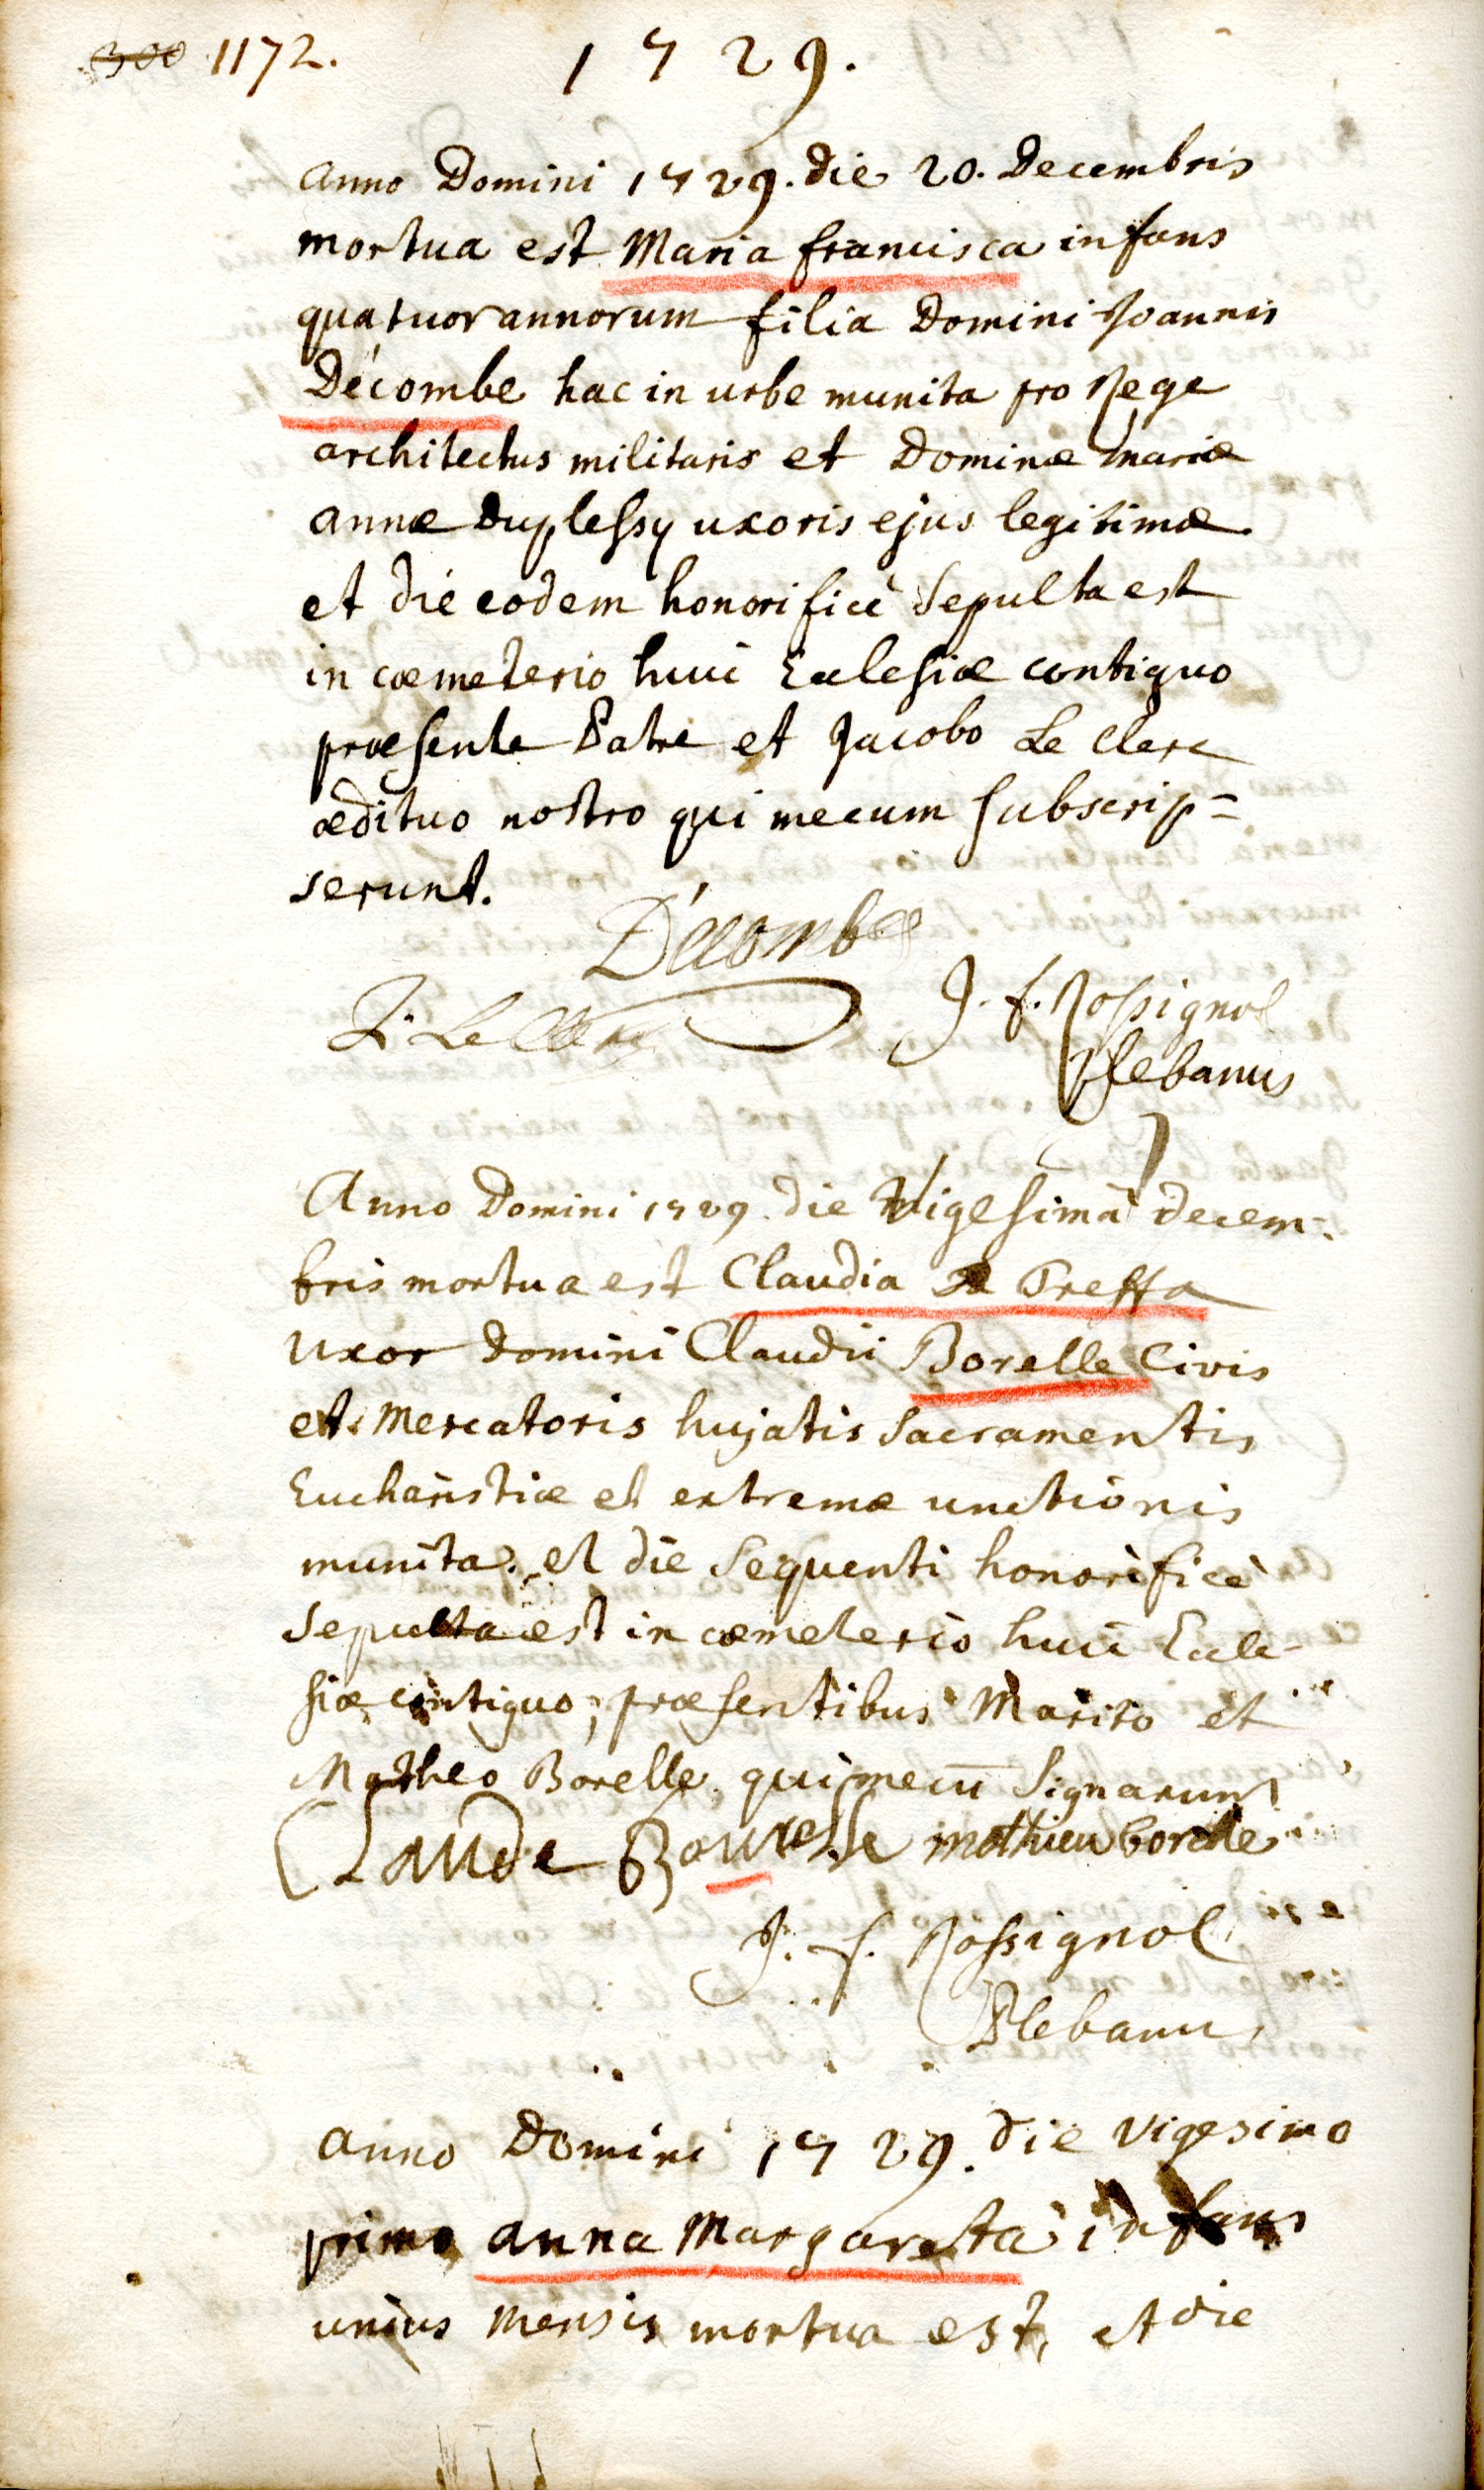 300 1172. 1729.
Anno Domini 1729. die 20. Decembris
mortua est Maria francisca infans
quatuor annorum filia Domini Joannis
Décombe hac in urbe munita pro Rege
architectus militaris et Dominæ Mariæ
annæ Duplessy uxoris ejus legitimæ
et die eodem honorificè Sepulta est
in cœmeterio huic Ecclesiæ contiguo
præsente Patre et Jacobo Le Clerc
ædituo nostro qui mecum subscrip=
serunt.
Décombe
J. Le Clerc J. f. Rossignol
Plebanus
Anno Domini 1729. die Vigesimâ decem-
bris mortua est Claudia
uxor Domini Claudii Borelle Civis
et Mercatoris hujatis Sacramentis
Eucharistiæ et extremæ unctionis
munita. et die Sequenti honorificè
Sepulta est in cœmeterio huic Eccle-
siæ contiguo, præsentibus Marito et
Matheo Borelle qui mecū Signarunt
Claude Bourelle mathieu borelle
J. f. Rossignol
Plebanus
anno Domini 1729. die vigesimo
primo anna Margareta infans
unius mensis mortua est, et die